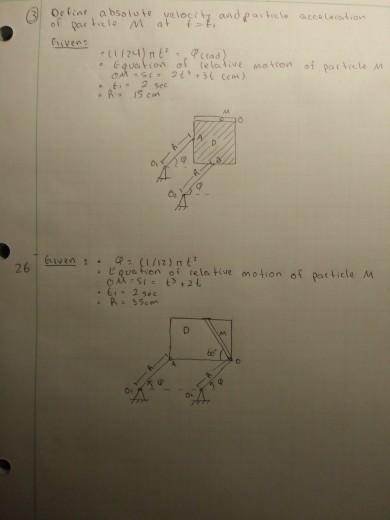 ③ Define absolute velocity and particle acceleration
of particle M at t = t₁
Given:
• (1/24) π t² = φ (rad)
• Equation of relative motion of particle M
OM = S₁ = 2t³ + 3t (cm)
• t₁ = 2 sec
• R = 15 cm
M
O
A
D
R
O₁
φ
R
φ
O₂
26
Given:
• φ = (1/12) π t²
• Equation of relative motion of particle M
OM = S₁ = t³ + 2t
• t₁ = 2 sec
• R = 35cm
D
M
60°
A
O
R
R
O₁
φ
O₂
φ